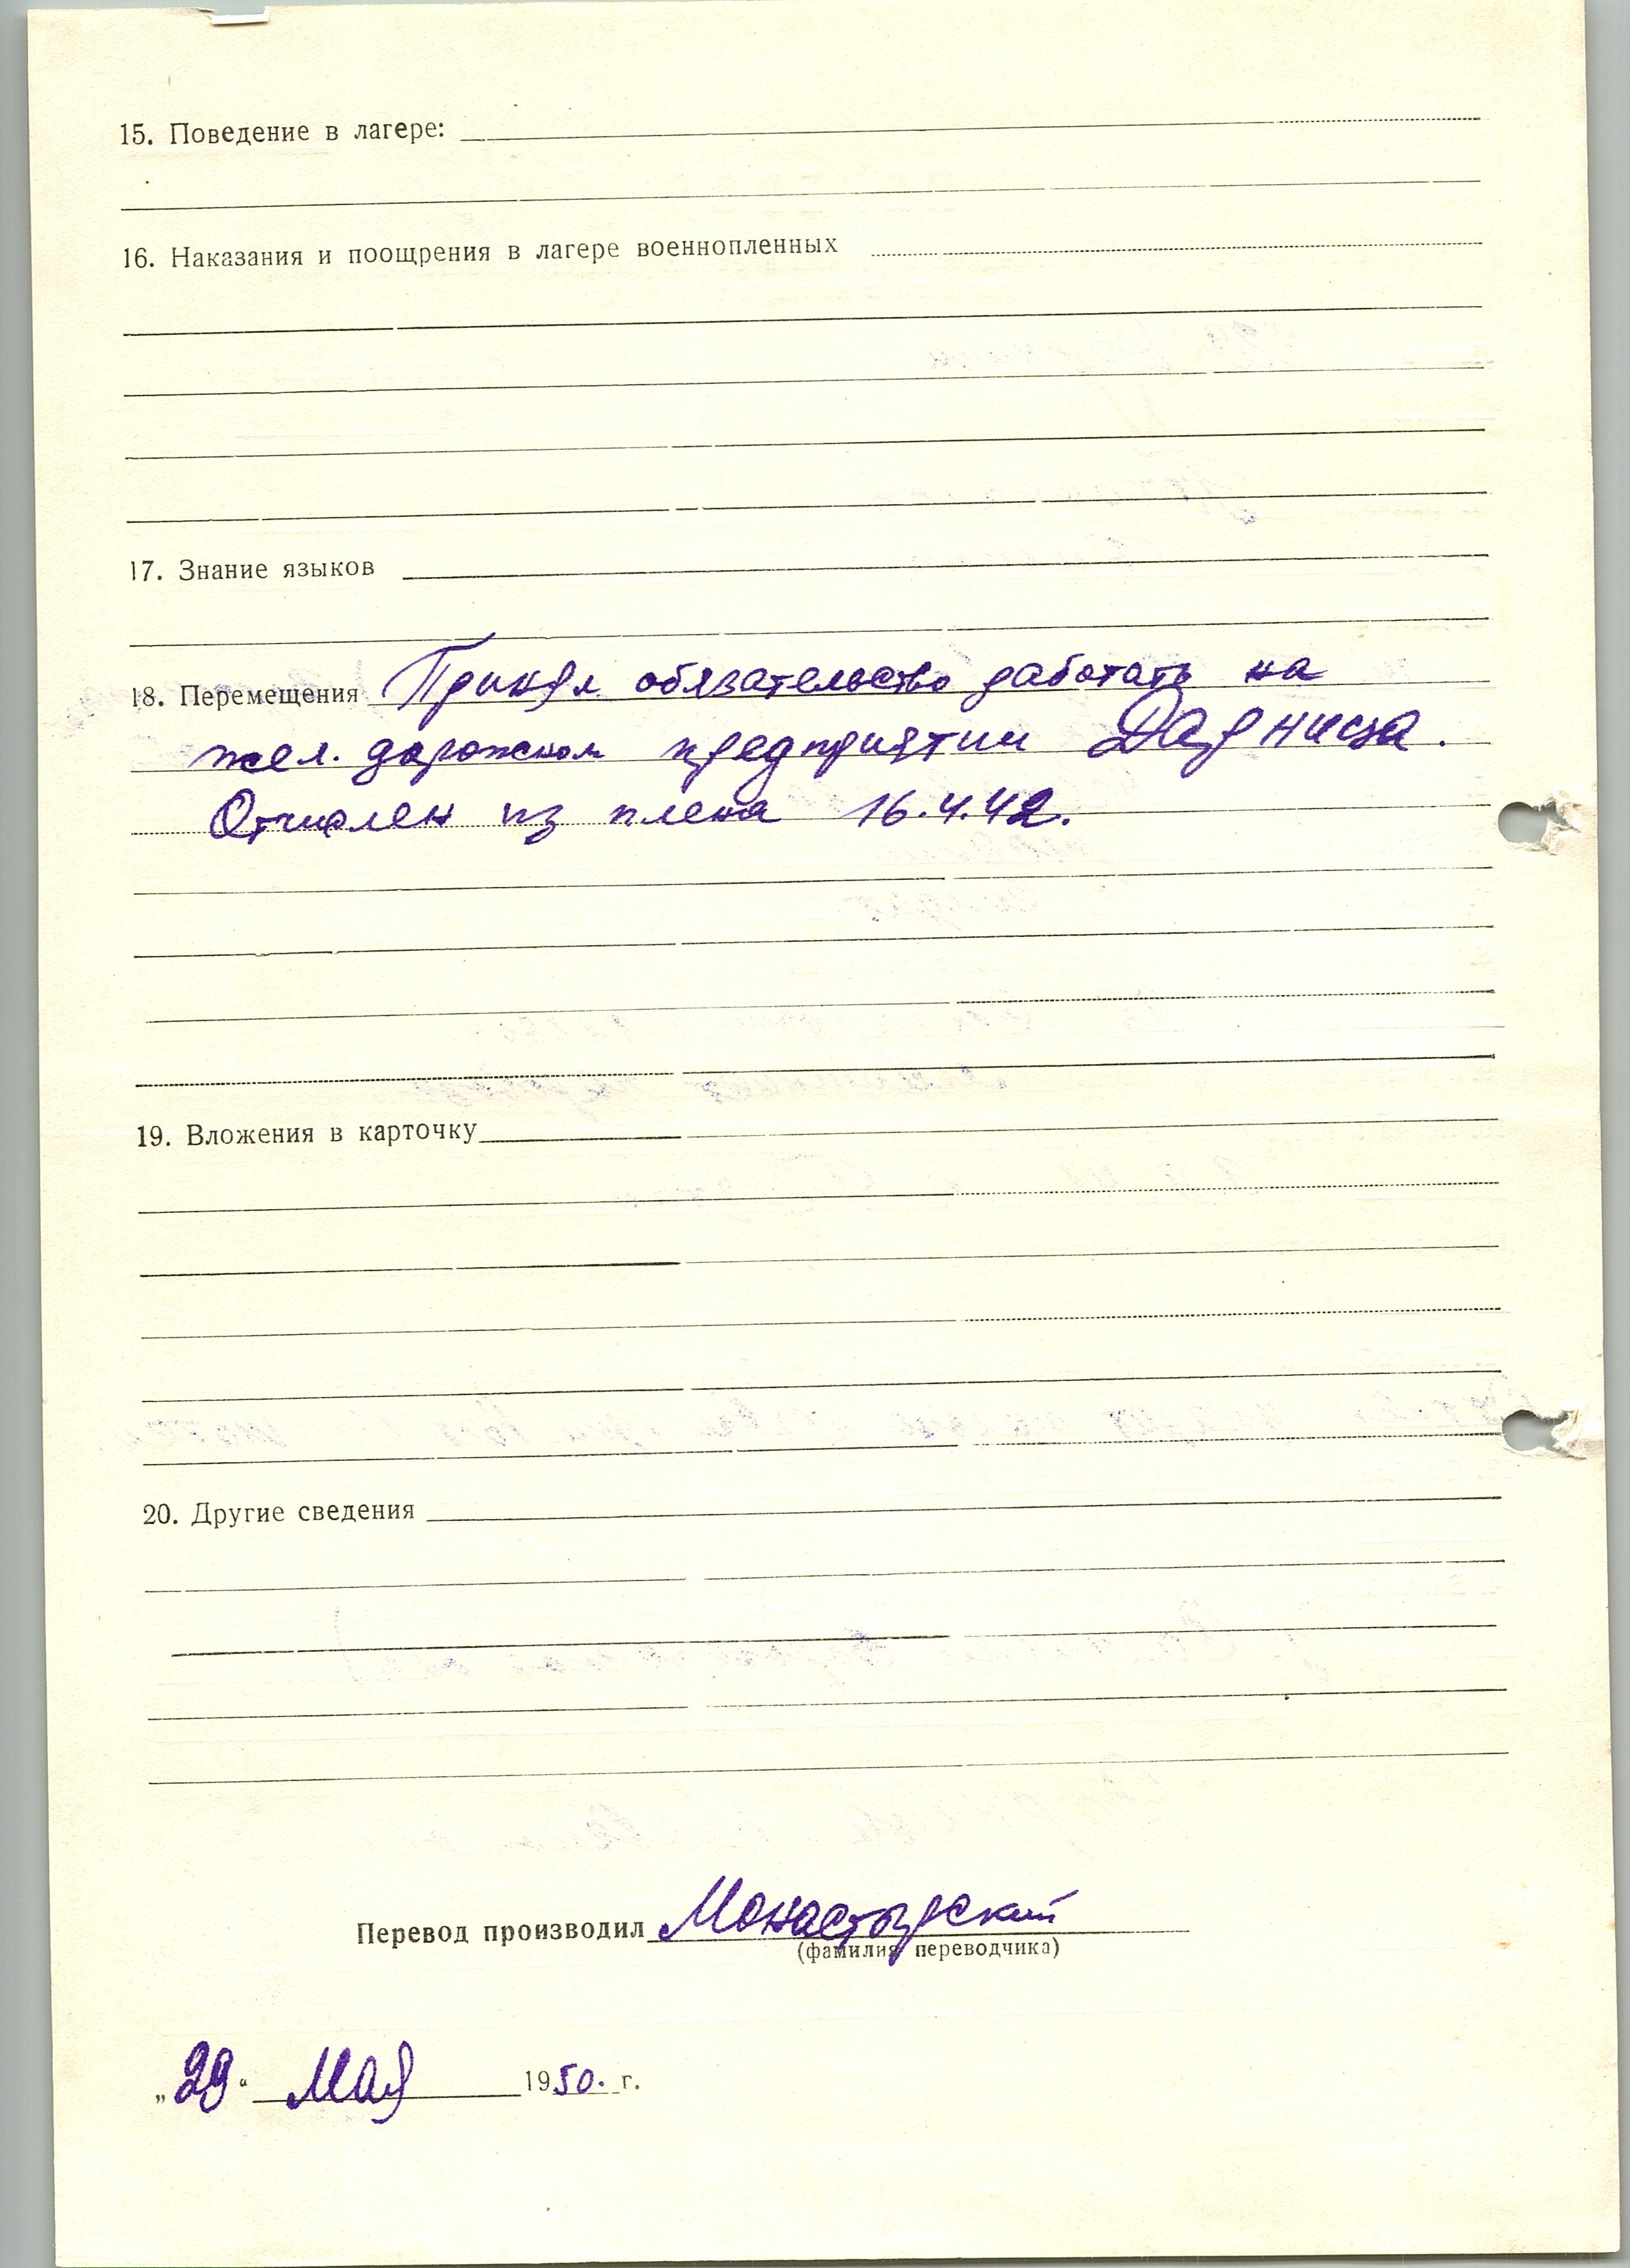 15. Поведение в лагере:
16. Наказания и поощрения в лагере военнопленных
17. Знание языков
18. Перемещения Принял обязательство работать на
жел. дорожном предприятии Дарница.
Отчислен из плена 16.4.42.
19. Вложения в карточку
20. Другие сведения
Перевод производил Монастырский
(фамилия переводчика)
„29“ Мая 1950. г.